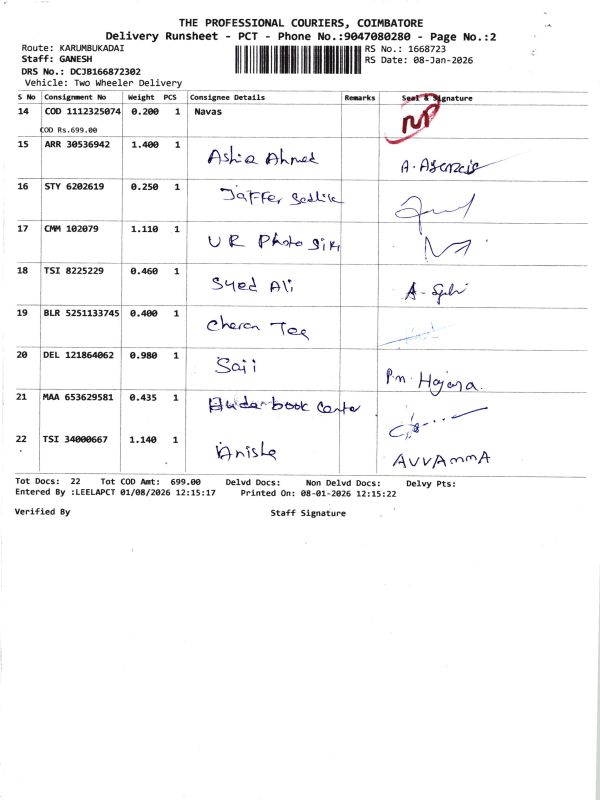 THE PROFESSIONAL COURIERS, COIMBATORE
Delivery Runsheet - PCT - Phone No.:9047080280 - Page No.:2
Route: KARUMBUKADAI RS No.: 1668723
Staff: GANESH RS Date: 08-Jan-2026
DRS No.: DCJB166872302
Vehicle: Two Wheeler Delivery
S No Consignment No Weight PCS Consignee Details Remarks Seal & Signature
14 COD 1112325074 0.200 1 Navas NP
COD Rs.699.00
15 ARR 30536942 1.400 1 Ashiq Ahmed A.
16 STY 6202619 0.250 1 Jaffer Sadlik
17 CMM 102079 1.110 1 UR Photo
18 TSI 8225229 0.460 1 Syed Ali A -
19 BLR 5251133745 0.400 1 Cheran Tea
20 DEL 121864062 0.980 1 Saii P.m. Hajara.
21 MAA 653629581 0.435 1 book Center
22 TSI 34000667 1.140 1 Anisha AVVAmmA
Tot Docs: 22 Tot COD Amt: 699.00 Delvd Docs: Non Delvd Docs: Delvy Pts:
Entered By :LEELAPCT 01/08/2026 12:15:17 Printed On: 08-01-2026 12:15:22
Verified By Staff Signature